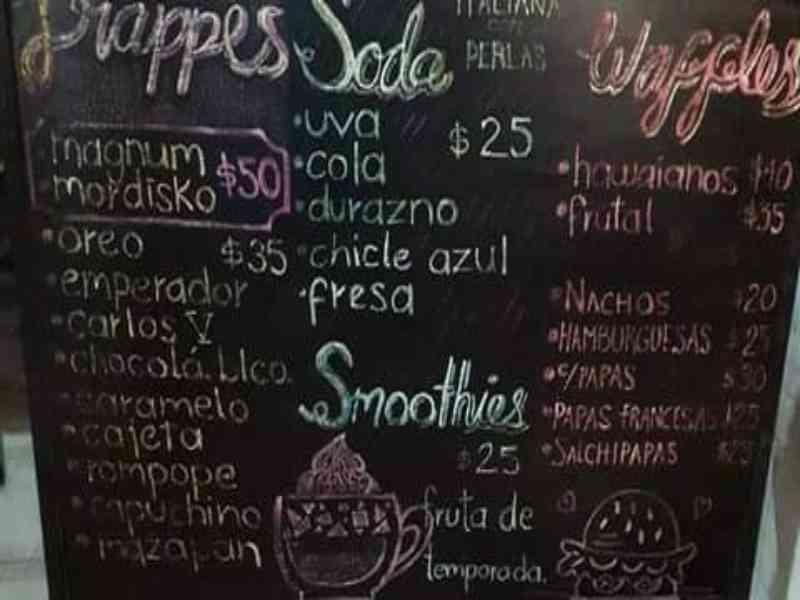 Frappes
magnum
mordisko $50
• oreo $35
• emperador
• carlos V
• chocola. blco.
• caramelo
• cajeta
• rompope
• capuchino
• mazapan
Soda ITALIANA
con
PERLAS
• uva $25
• cola
• durazno
• chicle azul
• fresa
Smoothies
$25
fruta de
temporada.
Waffles
• hawaianos $40
• frutal $35
• NACHOS $20
• HAMBURGUESAS $25
• c/PAPAS $30
• PAPAS FRANCESAS $25
• SALCHIPAPAS $25